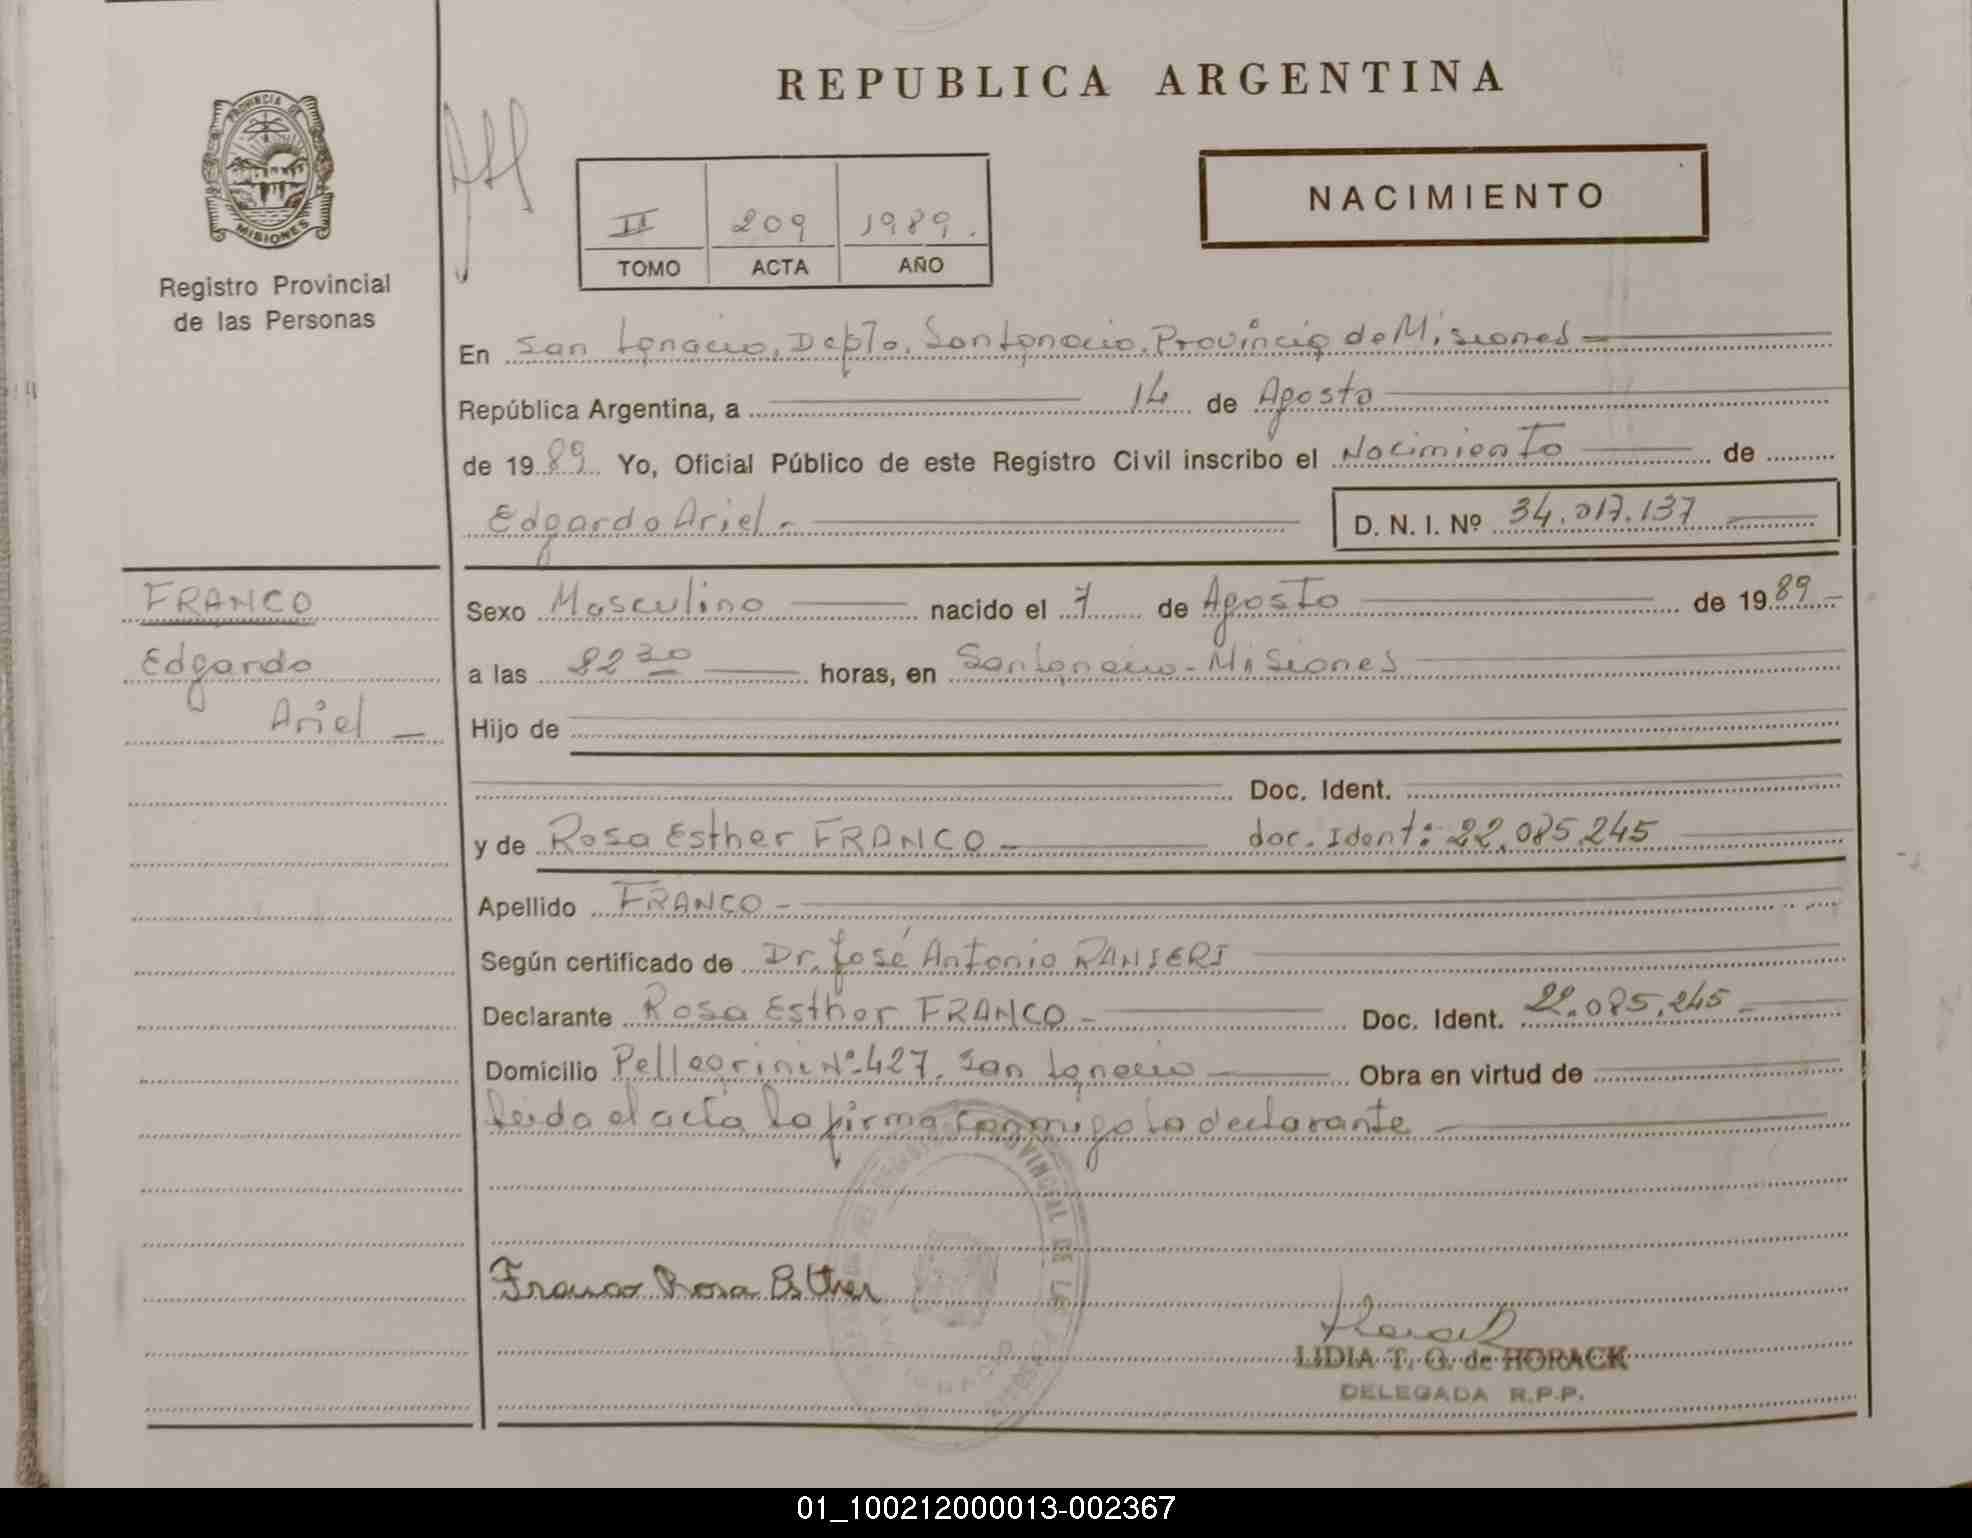 REPUBLICA ARGENTINA
PROVINCIA DE MISIONES
Registro Provincial
de las Personas
II 209 1989.
TOMO ACTA AÑO
NACIMIENTO
En San Ignacio, Depto, San Ignacio, Provincia de Misiones
República Argentina, a 14 de Agosto
de 19 89 Yo, Oficial Público de este Registro Civil inscribo el Nacimiento de
Edgardo Ariel - D. N. I. Nº 34.017.137
FRANCO
Edgardo
Ariel
Sexo Masculino nacido el 7 de Agosto de 19 89
a las 8 30 horas, en San Ignacio - Misiones
Hijo de
Doc. Ident.
y de Rosa Esther FRANCO - doc. Ident: 22.085.245
Apellido FRANCO -
Según certificado de Dr. José Antonio RANIERI
Declarante Rosa Esther FRANCO - Doc. Ident. 22.085.245
Domicilio Pellegrini Nº 427. San Ignacio Obra en virtud de
leida el acta la firma conmigo la declarante
PROVINCIAL DE LAS
Franco Rosa Esther
Horack
LIDIA T. G. de HORACK
DELEGADA R.P.P.
01_100212000013-002367